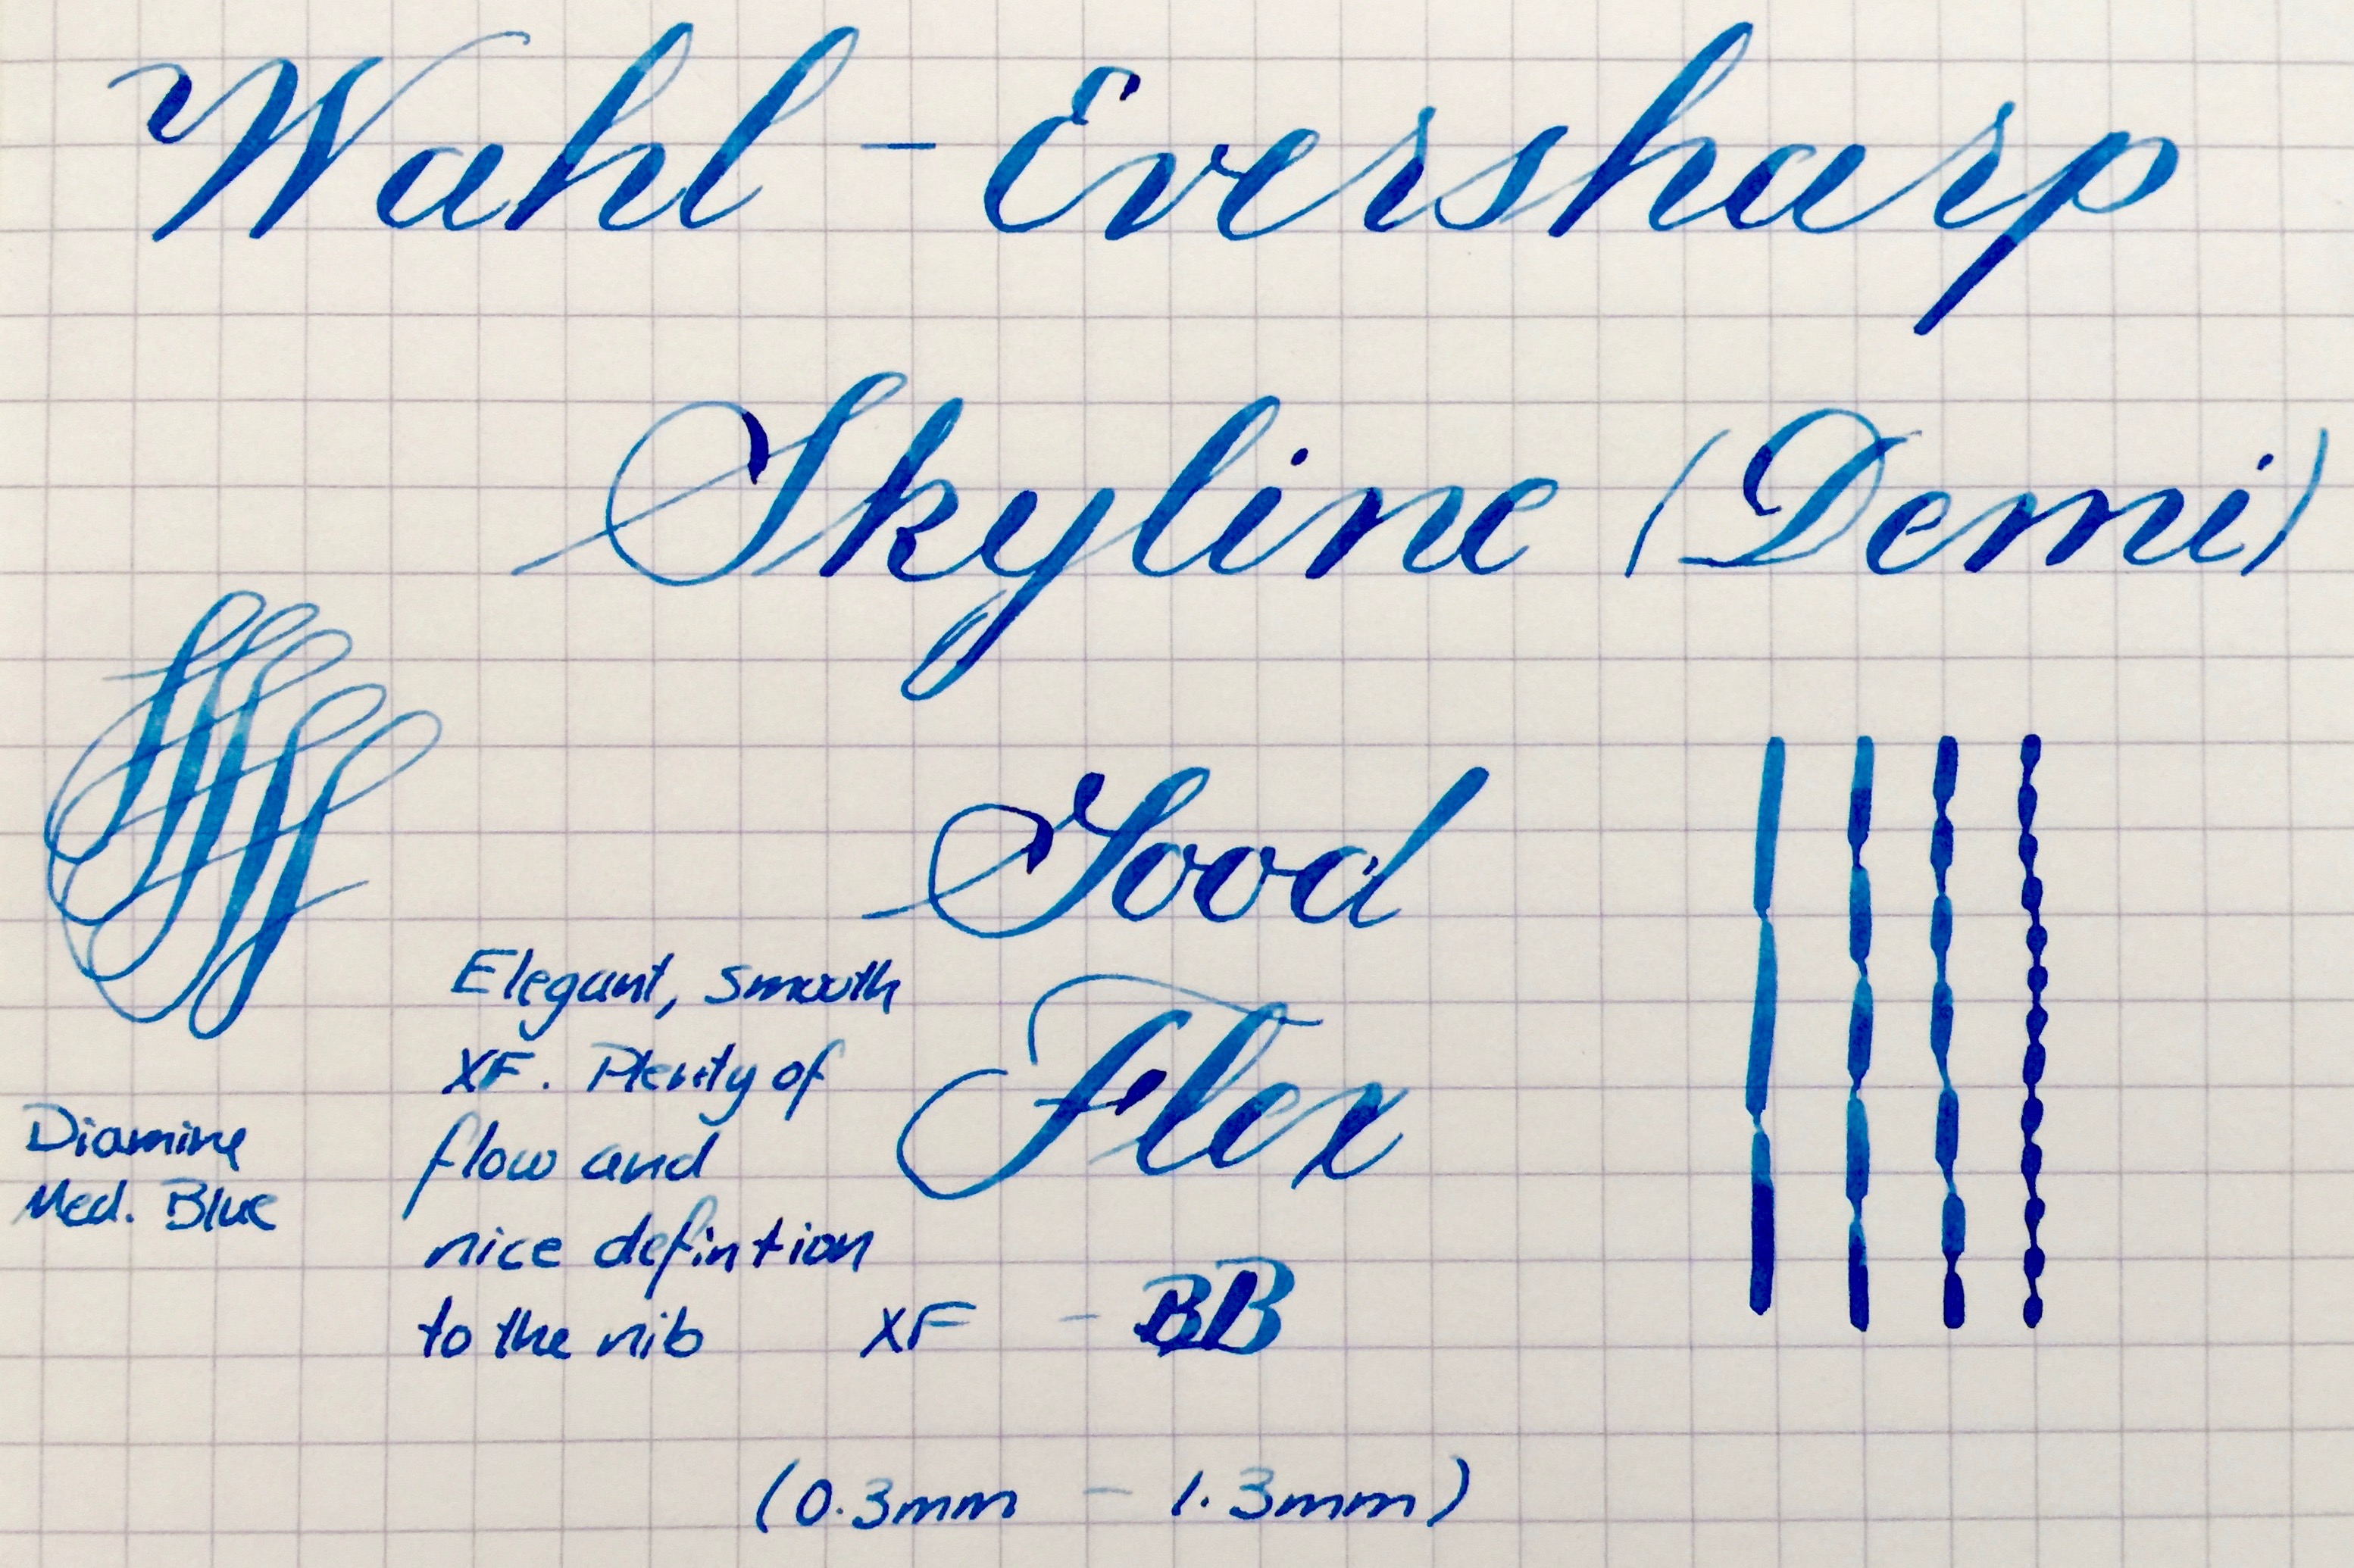 Wahl - Eversharp
Skyline (Demi)
Good
Flex
Elegant, smooth
XF. Plenty of
flow and
nice defintion
to the nib
XF - BB
(0.3mm - 1.3mm)
Diamine
Med. Blue